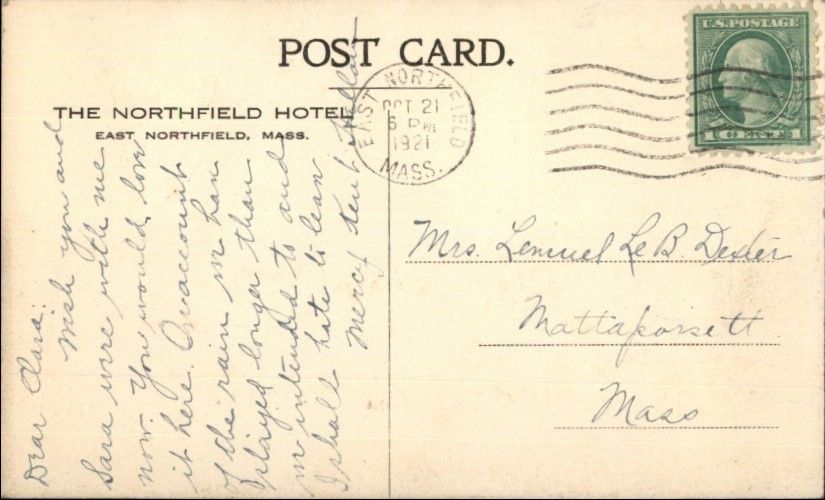 POST CARD.
THE NORTHFIELD HOTEL
EAST NORTHFIELD, MASS.
EAST NORTHFIELD
OCT 21
6 PM
1921
MASS.
U.S. POSTAGE
1 CENT 1
Mrs. Lemuel Le B. Dexter
Mattapoisett
Mass
Dear Clara:
Wish you and
Sara were with me
now. You would love
it here. On account
of the rain we han
played longer than
we intended to and
I shall hate to leave
Mercy